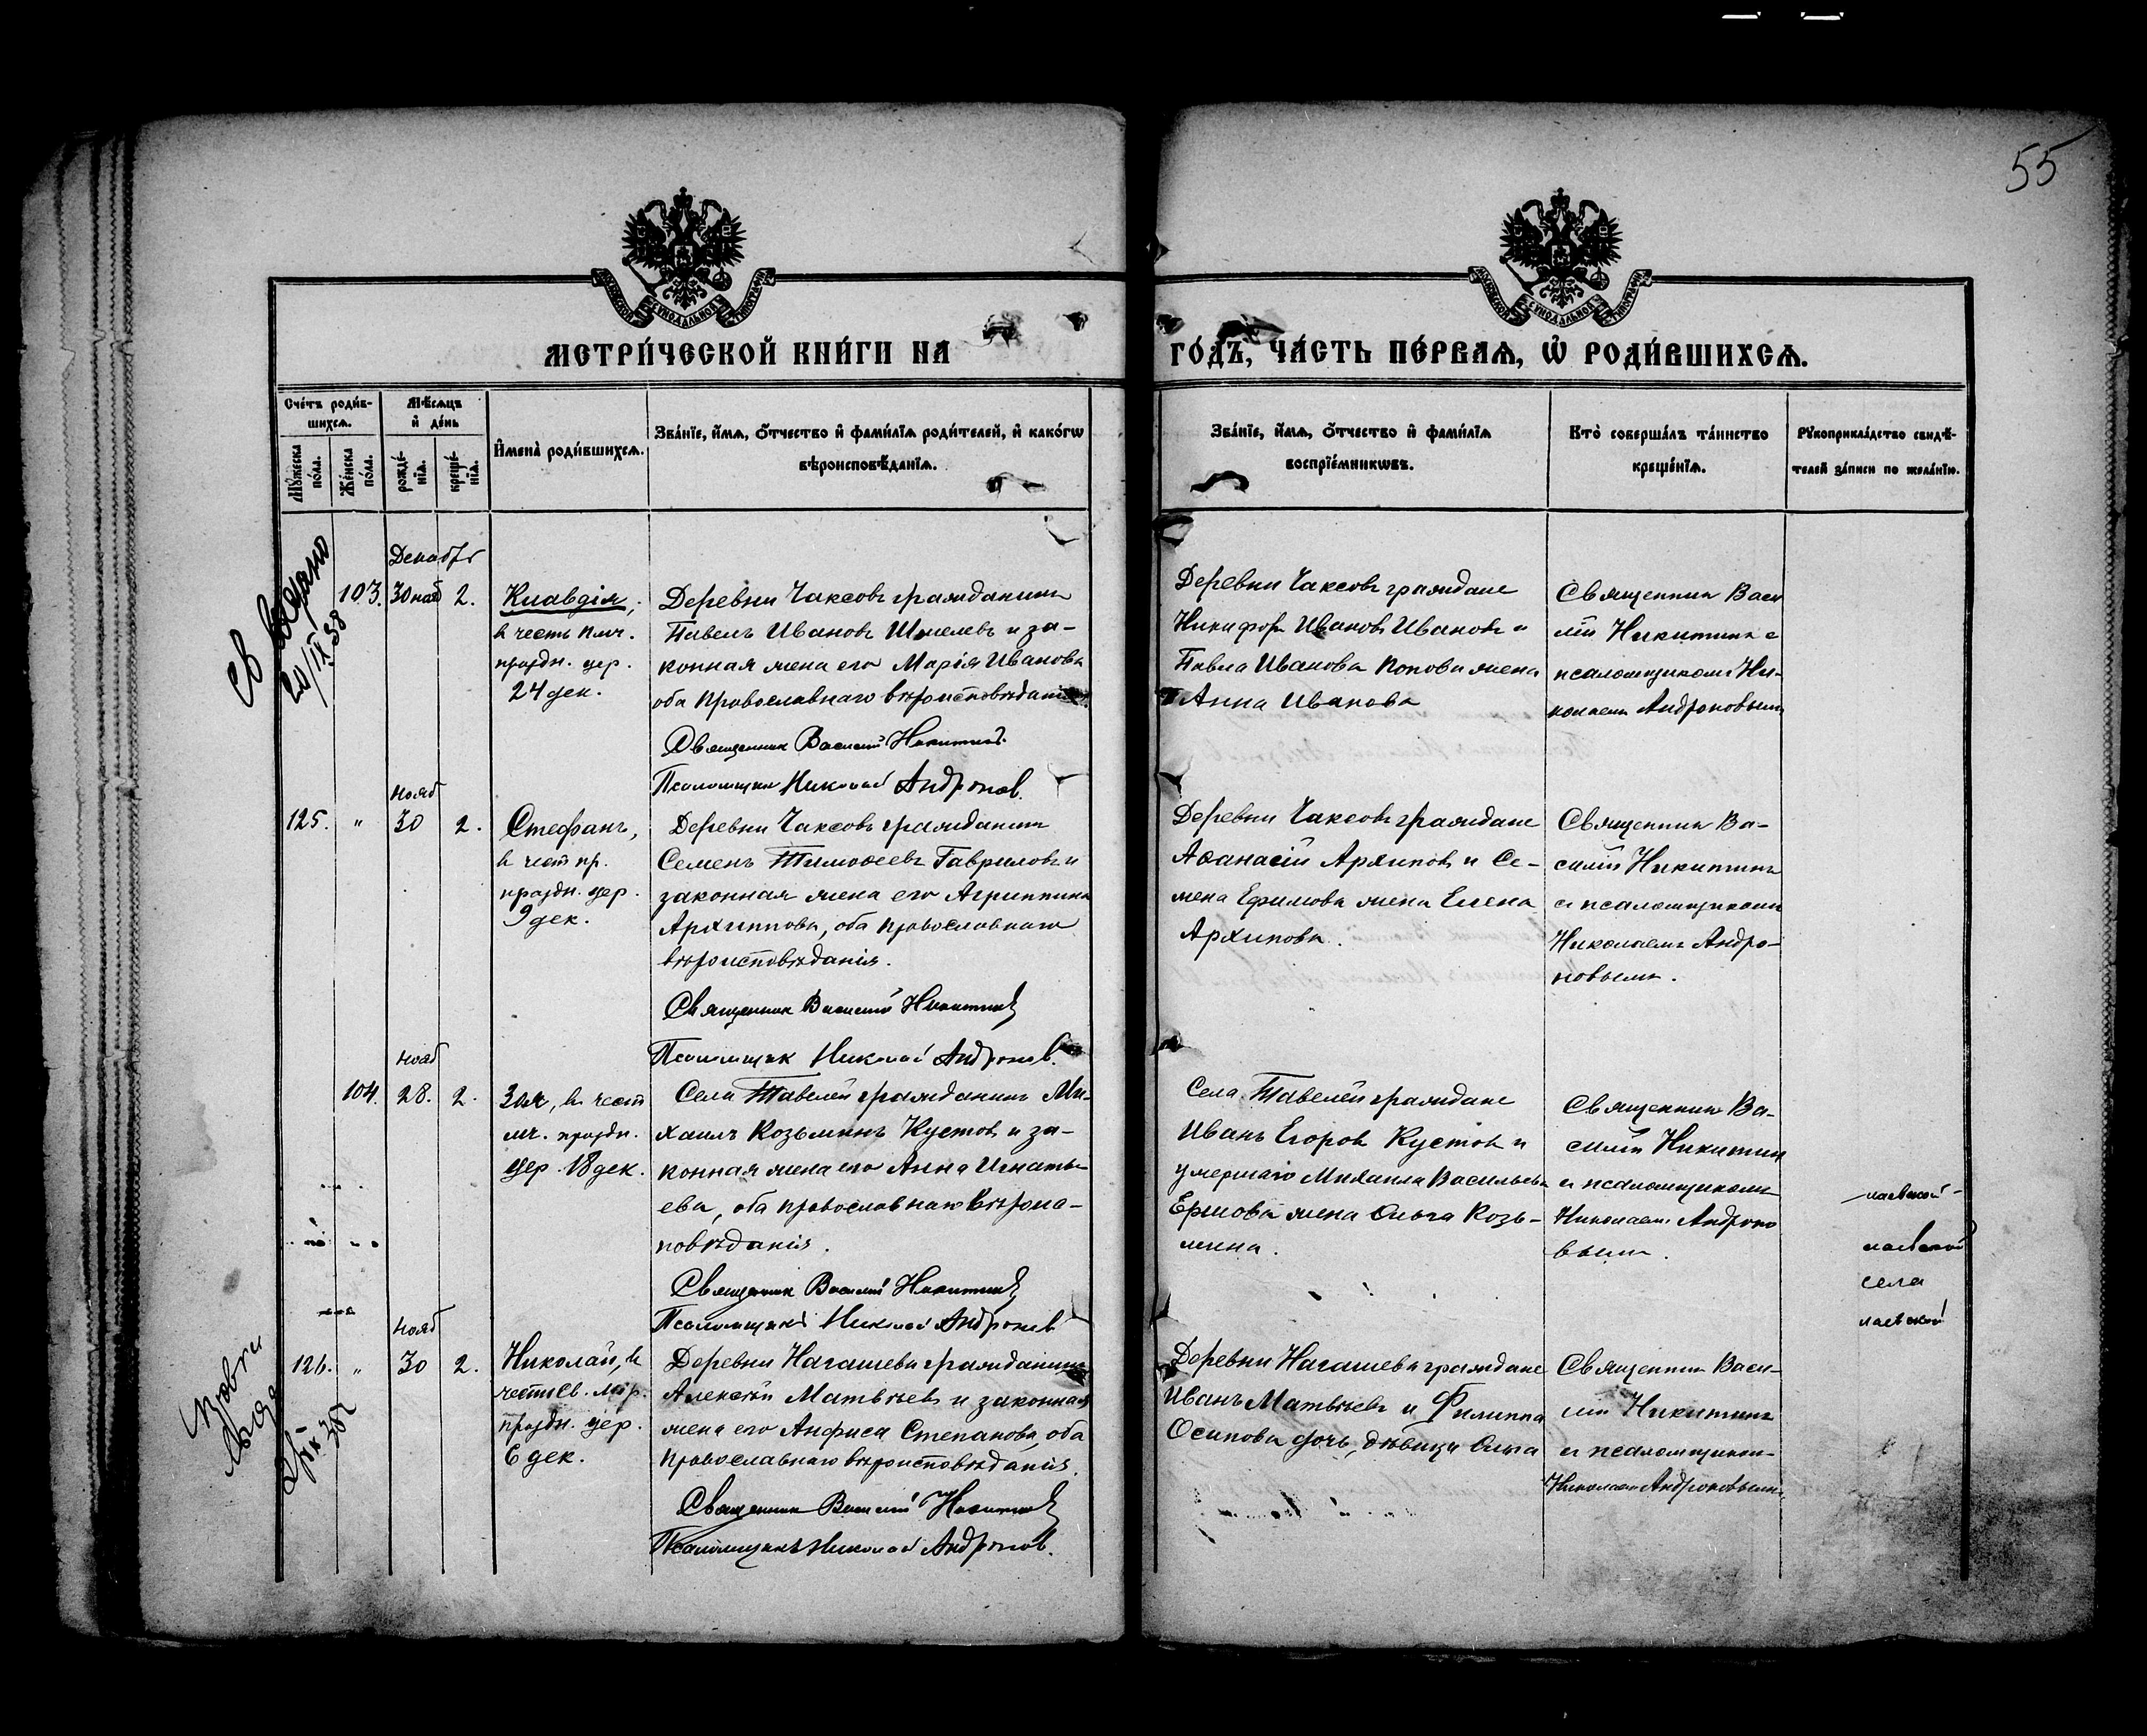 55
МЕТРИ́ЧЕСКОЙ КНИ́ГИ НА
ГО́ДЪ, ЧА́СТЬ ПЕ́РВАѦ, Ѡ҆ РОДИ́ВШИХСѦ.
Сче́тъ роди́в-
шихсѧ.
Мѣ́сѧцъ
и҆ де́нь
Мꙋ́жеска
по́ла.
Же́нска
по́ла.
рожде́-
нїѧ.
креще́-
нїѧ.
И҆мена̀ роди́вшихсѧ.
Зва́нїе, и҆́мѧ, ѻ҆́тчество и҆ фами́лїѧ роди́телей, и҆ како́гѡ
вѣроисповѣ́данїѧ.
Зва́нїе, и҆́мѧ, ѻ҆́тчество и҆ фами́лїѧ
воспрїе́мникѡвъ.
Кто̀ соверша́лъ та́инство
креще́нїѧ.
Рꙋкоприкла́дство свидѣ́-
телей за́писи по жела́нїю.
Декабрь
103. 30 нояб 2.
Клавдія,
в честь мч.
праздн. цер.
24 дек.
Деревни Чаксовъ гражданинъ
Павелъ Ивановъ Шмелевъ и за-
конная жена его Марія Иванова
оба православнаго вѣроисповѣданія
Священник Василий Никитинъ.
Псаломщик Николай Андронов.
Деревни Чаксовъ граждане
Никифоръ Ивановъ Ивановъ и
Павла Иванова Попова жена
Анна Иванова
Священник Васи
лій Никитинъ с
псаломщикомъ Ни-
колаемъ Андроновымъ
20/IX 38
нояб
125. " 30 2.
Стефанъ,
в чест пр.
праздн. цер.
9 дек.
Деревни Чаксовъ гражданинъ
Семенъ Тимоѳеевъ Гавриловъ и
законная жена его Агриппина
Архиппова, оба православнаго
вѣроисповѣданія.
Священник Василий Никитинъ
Псаломщик Николай Андронов.
Деревни Чаксовъ граждане
Аѳанасій Архиповъ и Се-
мена Ефимова жена Елена
Архипова.
Священник Ва-
силій Никитинъ
съ псаломщикомъ
Николаемъ Андро-
новымъ.
нояб
104. 28. 2.
Зоя, в чест
мч. праздн.
цер. 18 дек.
Села Тавелей гражданинъ Ми-
хаилъ Козьминъ Кустовъ и за-
конная жена его Анна Игнать-
ева, оба православнаго вѣроис-
повѣданія.
Священник Василий Никитинъ
Псаломщикъ Николай Андронов
Села Тавелей граждане
Иванъ Егоровъ Кустовъ и
умершаго Михаила Васильева
Ершова жена Ольга Козь-
мина.
Священник Ва-
силій Никитинъ
съ псаломщикомъ
Николаемъ Андроно
вымъ.
села
нояб
126. " 30 2.
Николай, в
честь св. мір.
праздн. цер.
6 дек.
Деревни Нагашева гражданинъ
Алексѣй Матвѣевъ и законная
жена его Анфиса Степанова, оба
православнаго вѣроисповѣданія.
Священник Василий Никитинъ
Псаломщикъ Николай Андронов.
Деревни Нагашева граждане
Иванъ Матвѣевъ и Филиппа
Осипова дочь, дѣвица Ольга
Священник Васи-
лій Никитинъ
съ псаломщиком
Николаем Андроновымъ